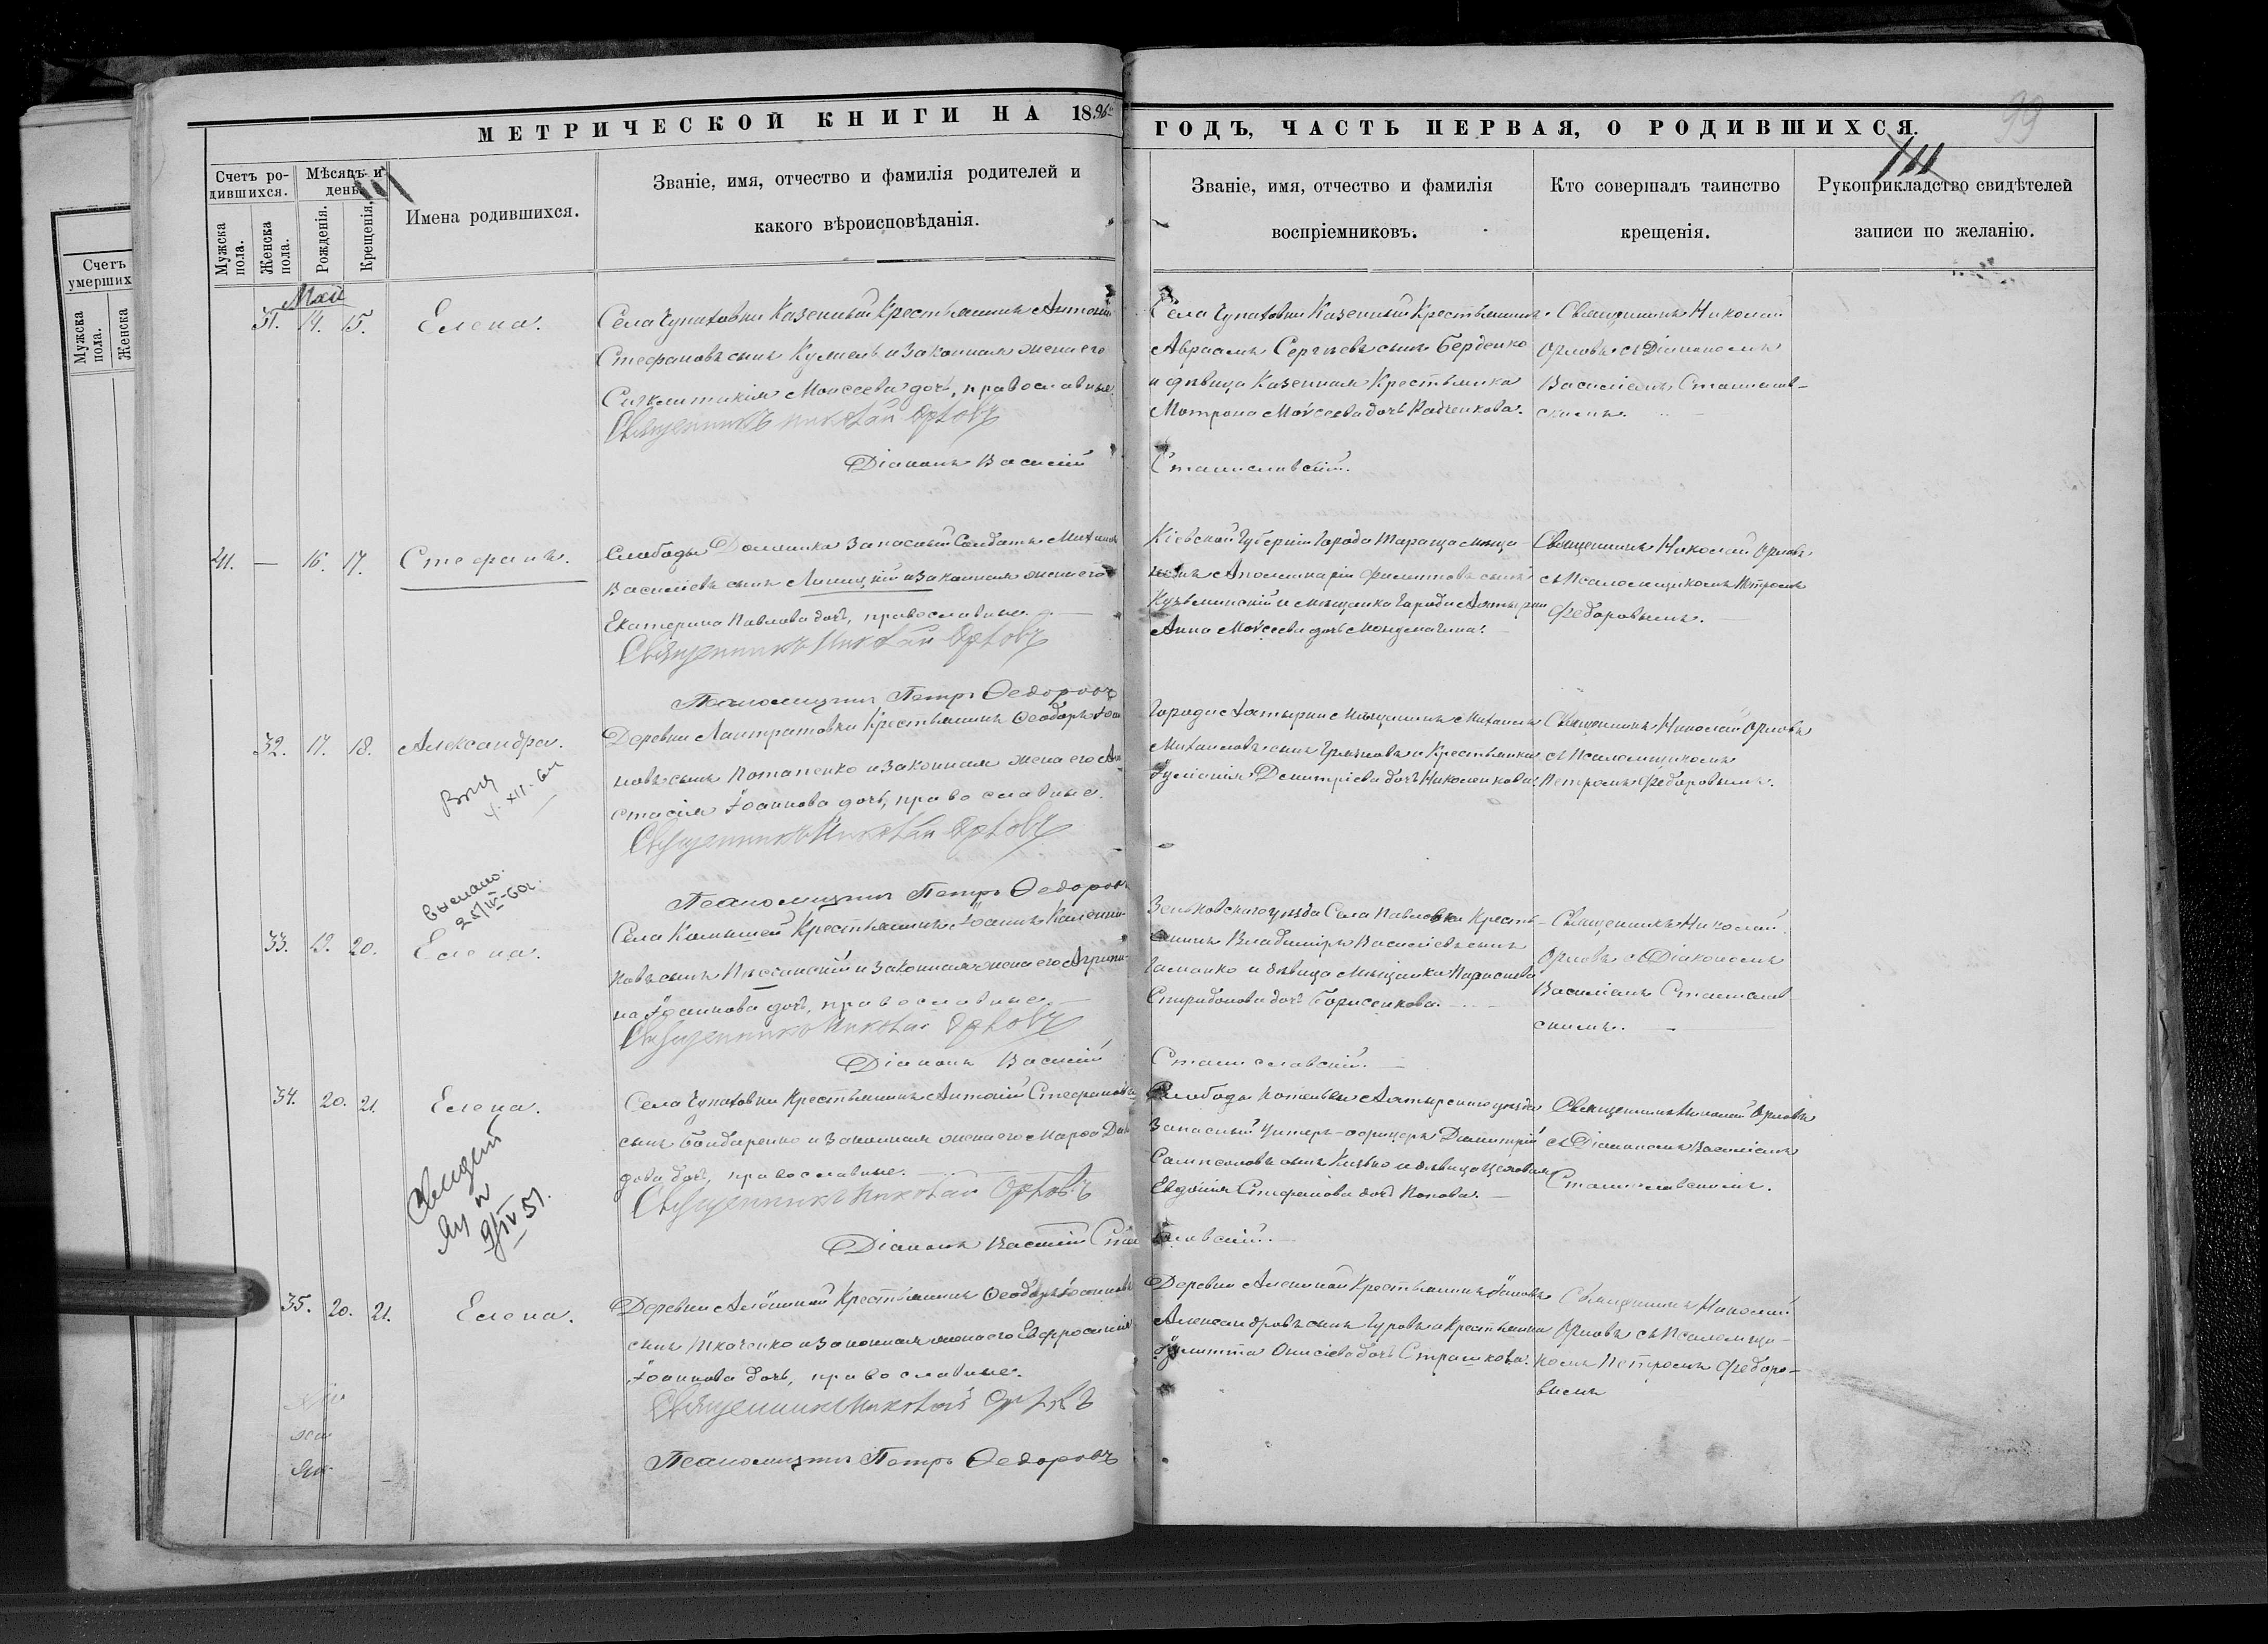 МЕТРИЧЕСКОЙ КНИГИ НА 1896
ГОДЪ, ЧАСТЬ ПЕРВАЯ, О РОДИВШИХСЯ.
99
111
111
Счетъ ро-
дившихся.
Мѣсяцъ и
день
Мужска
пола.
Женска
пола.
Рожденія.
Крещенія,
Имена родившихся.
Званіе, имя, отчество и фамилія родителей и
какого вѣроисповѣданія.
Званіе, имя, отчество и фамилія
воспріемниковъ.
Кто совершалъ таинство
крещенія.
Рукоприкладство свидѣтелей
записи по желанію.
Счетъ
умерших
Мужска
пола.
Женска
Май
31. 14. 15. Елена.
Села Чупаховки Казенный Крестьянинъ Антоній
Стефановъ сынъ и законная жена его
Синклитикія Моисеева дочь, православные
Священникъ Николай Орловъ
Діаконъ Василій
Села Чупаховки Казенный Крестьянинъ
Авраамъ Сергѣевъ сынъ Берденко
и дѣвица Казенная Крестьянка
Матрона Моѵсеева дочь
Станиславскій.
Священникъ Николай
Орловъ съ Діакономъ
Василіемъ Станислав-
скимъ.
41. — 16. 17. Стефанъ.
Слободы Запасный Солдатъ Михаилъ
Василіевъ сынъ и законная жена его
Екатерина Павлова дочь, православные.
Священникъ Николай Орловъ
Псаломщикъ Петръ Ѳедоровъ
Кіевской Губерніи Города Тараща мѣща-
нинъ Аполлинарій Филиповъ сынъ
Кузьминскій и мѣщанка города Ахтырки
Анна Моѵсеева дочь
Священникъ Николай Орловъ
съ Псаломщикомъ Петромъ
Федоровымъ.
32. 17. 18. Александра.
4. XII. 61
Деревни Лантратовки Крестьянинъ Ѳеодоръ Іоан
новъ сынъ Потапенко и законная жена его Ан
стасія Іоаннова дочь, православные.
Священникъ Николай Орловъ
Псаломщикъ Петръ Ѳедоровъ
Города Ахтырки Мѣщанинъ Михаилъ
Михаиловъ сынъ и Крестьянка
Іуліанія Димитріева дочь Николенкова.
Священникъ Николай Орловъ
съ Псаломщикомъ
Петромъ Федоровымъ.
выслано.
25/IV-60г.
33. 19. 20. Елена.
Села Камышей Крестьянинъ Іоаннъ
новъ сынъ и законная жена его Агрипи-
на Іоаннова дочь, православные.
Священникъ Николай Орловъ
Діаконъ Василій
Зеньковскаго уѣзда Села Павловки Кресть-
янинъ Владиміръ Василіевъ сынъ
и дѣвица Мѣщанка
Спиридонова дочь Борисенкова.
Станиславскій.
Священникъ Николай
Орловъ съ Діакономъ
Василіемъ Станислав
скимъ.
34. 20. 21. Елена.
9/IV 51.
Села Чупаховки Крестьянинъ Антоній Стефановъ
сынъ Бондаренко и законная жена его Марѳа Дави
дова дочь, православные.
Священникъ Николай Орловъ
Діаконъ Василій Стани
Слободы Котельвы Ахтырскаго уѣзда
Запасный Унтеръ-офицеръ Димитрій
Сампсоновъ сынъ и дѣвица
Евдокія Стефанова дочь Попова.
славскій.
Священникъ Николай Орловъ
съ Діакономъ Василіемъ
Станиславскимъ.
35. 20. 21. Елена.
Деревни Алёшной Крестьянинъ Ѳеодоръ Іоанновъ
сынъ Ткаченко и законная жена его Евфросинія
Іоаннова дочь, православные.
Священникъ Николай Орловъ
Псаломщикъ Петръ Ѳедоровъ
Деревни Алешной Крестьянинъ Іаковъ
Александровъ сынъ Гуровъ и Крестьянка
Іулитта Онисіева дочь Страшкова.
Священникъ Николай
Орловъ съ Псаломщи-
комъ Петромъ Федоро-
вымъ